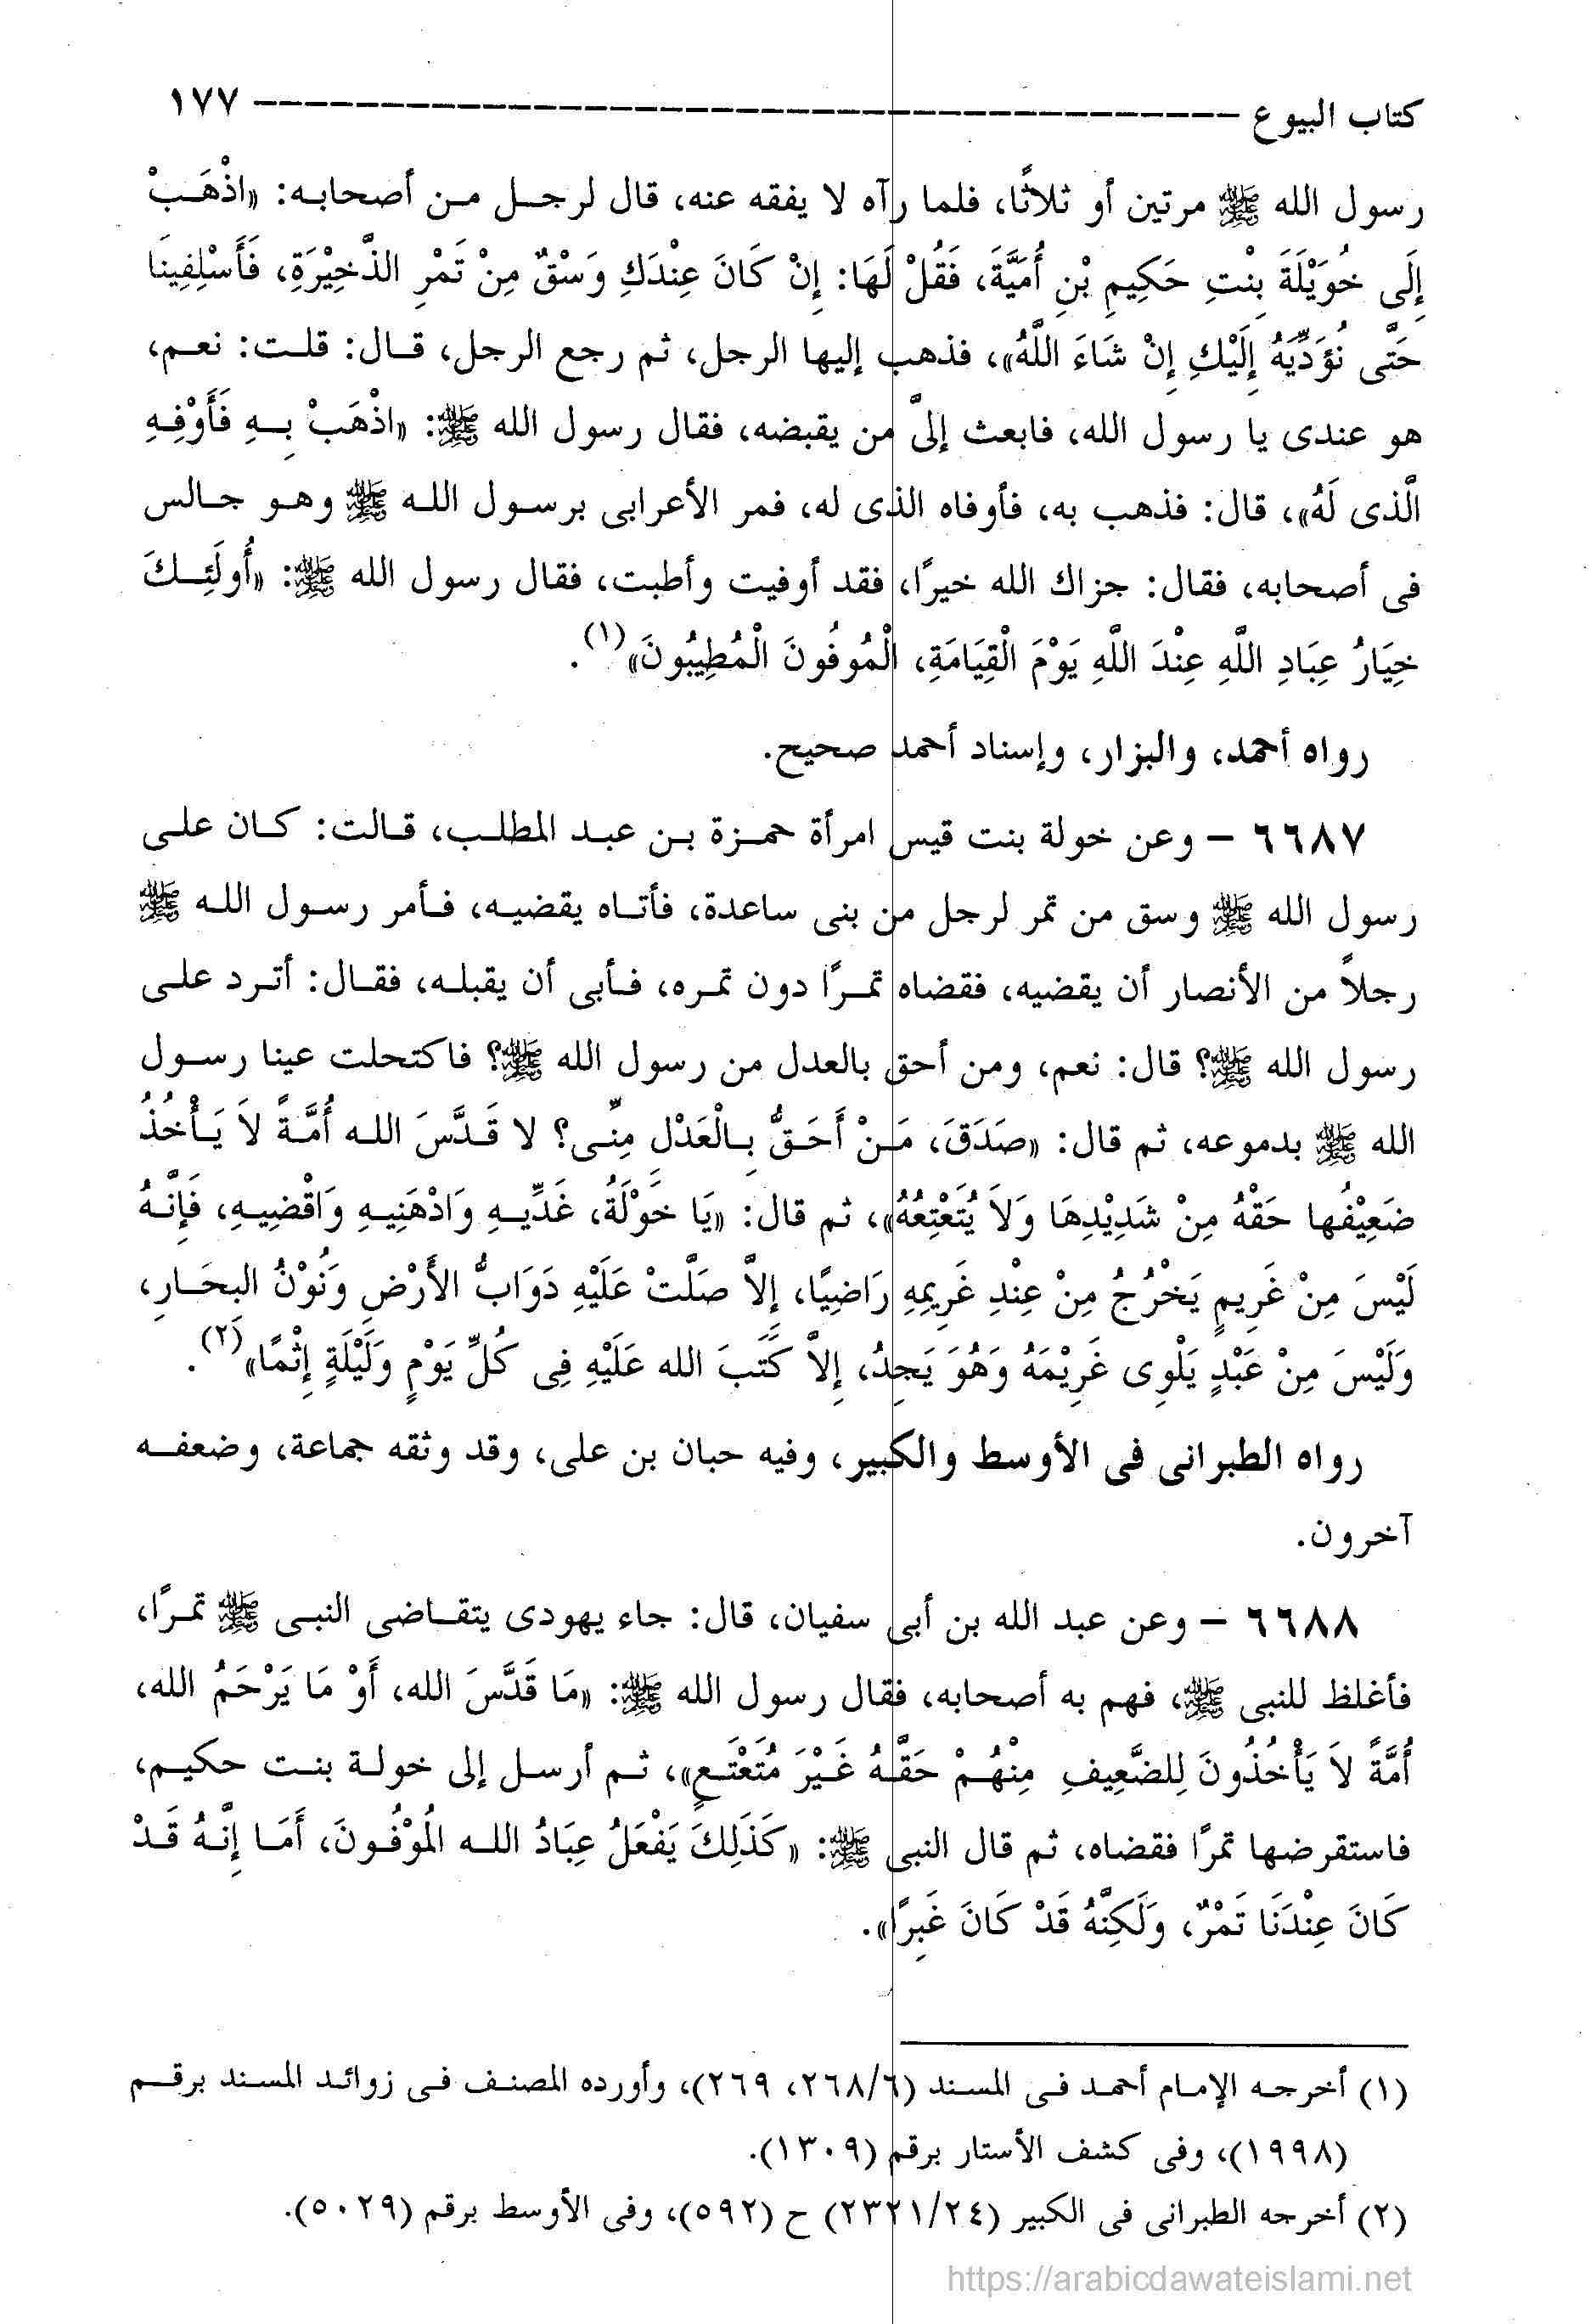 كتاب البيوع ---------------------------------------- ١٧٧
رسول الله ﷺ مرتين أو ثلاثًا، فلما رآه لا يفقه عنه، قال لرجل من أصحابه: «اذْهَبْ
إِلَى خُوَيْلَةَ بِنْتِ حَكِيمِ بْنِ أُمَيَّةَ، فَقُلْ لَهَا: إِنْ كَانَ عِنْدَكِ وَسْقٌ مِنْ تَمْرِ الذَّخِيْرَةِ، فَأَسْلِفِينَا
حَتَّى نُؤَدِّيَهُ إِلَيْكِ إِنْ شَاءَ اللَّهُ»، فذهب إليها الرجل، ثم رجع الرجل، قال: قلت: نعم،
هو عندى يا رسول الله، فابعث إلىَّ من يقبضه، فقال رسول الله ﷺ: «اذْهَبْ بِهِ فَأَوْفِهِ
الَّذى لَهُ»، قال: فذهب به، فأوفاه الذى له، فمر الأعرابى برسول الله ﷺ وهو جالس
فى أصحابه، فقال: جزاك الله خيرًا، فقد أوفيت وأطبت، فقال رسول الله ﷺ: «أُولَئِكَ
خِيَارُ عِبَادِ اللَّهِ عِنْدَ اللَّهِ يَوْمَ الْقِيَامَةِ، الْمُوفُونَ الْمُطِيبُونَ»(١).
رواه أحمد، والبزار، وإسناد أحمد صحيح.
٦٦٨٧ - وعن خولة بنت قيس امرأة حمزة بن عبد المطلب، قالت: كان على
رسول الله ﷺ وسق من تمر لرجل من بنى ساعدة، فأتاه يقضيه، فأمر رسول الله ﷺ
رجلاً من الأنصار أن يقضيه، فقضاه تمرًا دون تمره، فأبى أن يقبله، فقال: أترد على
رسول الله ﷺ؟ قال: نعم، ومن أحق بالعدل من رسول الله ﷺ؟ فاكتحلت عينا رسول
الله ﷺ بدموعه، ثم قال: «صَدَقَ، مَنْ أَحَقُّ بِالْعَدْلِ مِنِّى؟ لا قَدَّسَ الله أُمَّةً لاَ يَأْخُذُ
ضَعِيْفُها حَقْهُ مِنْ شَدِيْدِهَا وَلاَ يُتَعْتِعُهُ»، ثم قال: «يَا خَوْلَةُ، غَدِّيهِ وَادْهَنِيهِ وَاقْضِيهِ، فَإِنَّهُ
لَيْسَ مِنْ غَرِيمٍ يَخْرُجُ مِنْ عِنْدِ غَرِيمِهِ رَاضِيًا، إِلاَّ صَلَّتْ عَلَيْهِ دَوَابُّ الأَرْضِ وَنُوْنُ البحَارِ،
وَلَيْسَ مِنْ عَبْدٍ يَلْوِى غَرِيْمَهُ وَهُوَ يَجِدُ، إِلاَّ كَتَبَ الله عَلَيْهِ فِى كُلِّ يَوْمٍ وَلَيْلَةٍ إِثْمًا»(٢).
رواه الطبرانى فى الأوسط والكبير، وفيه حبان بن على، وقد وثقه جماعة، وضعفه
آخرون.
٦٦٨٨ - وعن عبد الله بن أبى سفيان، قال: جاء يهودى يتقاضى النبى ﷺ تمرًا،
فأغلظ للنبى ﷺ، فهم به أصحابه، فقال رسول الله ﷺ: «مَا قَدَّسَ الله، أَوْ مَا يَرْحَمُ الله،
أُمَّةً لاَ يَأْخُذُونَ لِلضَّعِيفِ مِنْهُمْ حَقَّهُ غَيْرَ مُتَعْتَعٍ»، ثم أرسل إلى خولة بنت حكيم،
فاستقرضها تمرًا فقضاه، ثم قال النبى ﷺ: «كَذَلِكَ يَفْعَلُ عِبَادُ الله المُوْفُونَ، أَمَا إِنَّهُ قَدْ
كَانَ عِنْدَنَا تَمْرٌ، وَلَكِنَّهُ قَدْ كَانَ غَبِرًا».
(١) أخرجه الإمام أحمد فى المسند (٢٦٨/٦، ٢٦٩)، وأورده المصنف فى زوائد المسند برقم
(١٩٩٨)، وفى كشف الأستار برقم (١٣٠٩).
(٢) أخرجه الطبرانى فى الكبير (٢٣٢١/٢٤) ح (٥٩٢)، وفى الأوسط برقم (٥٠٢٩).
https://arabicdawateislami.net